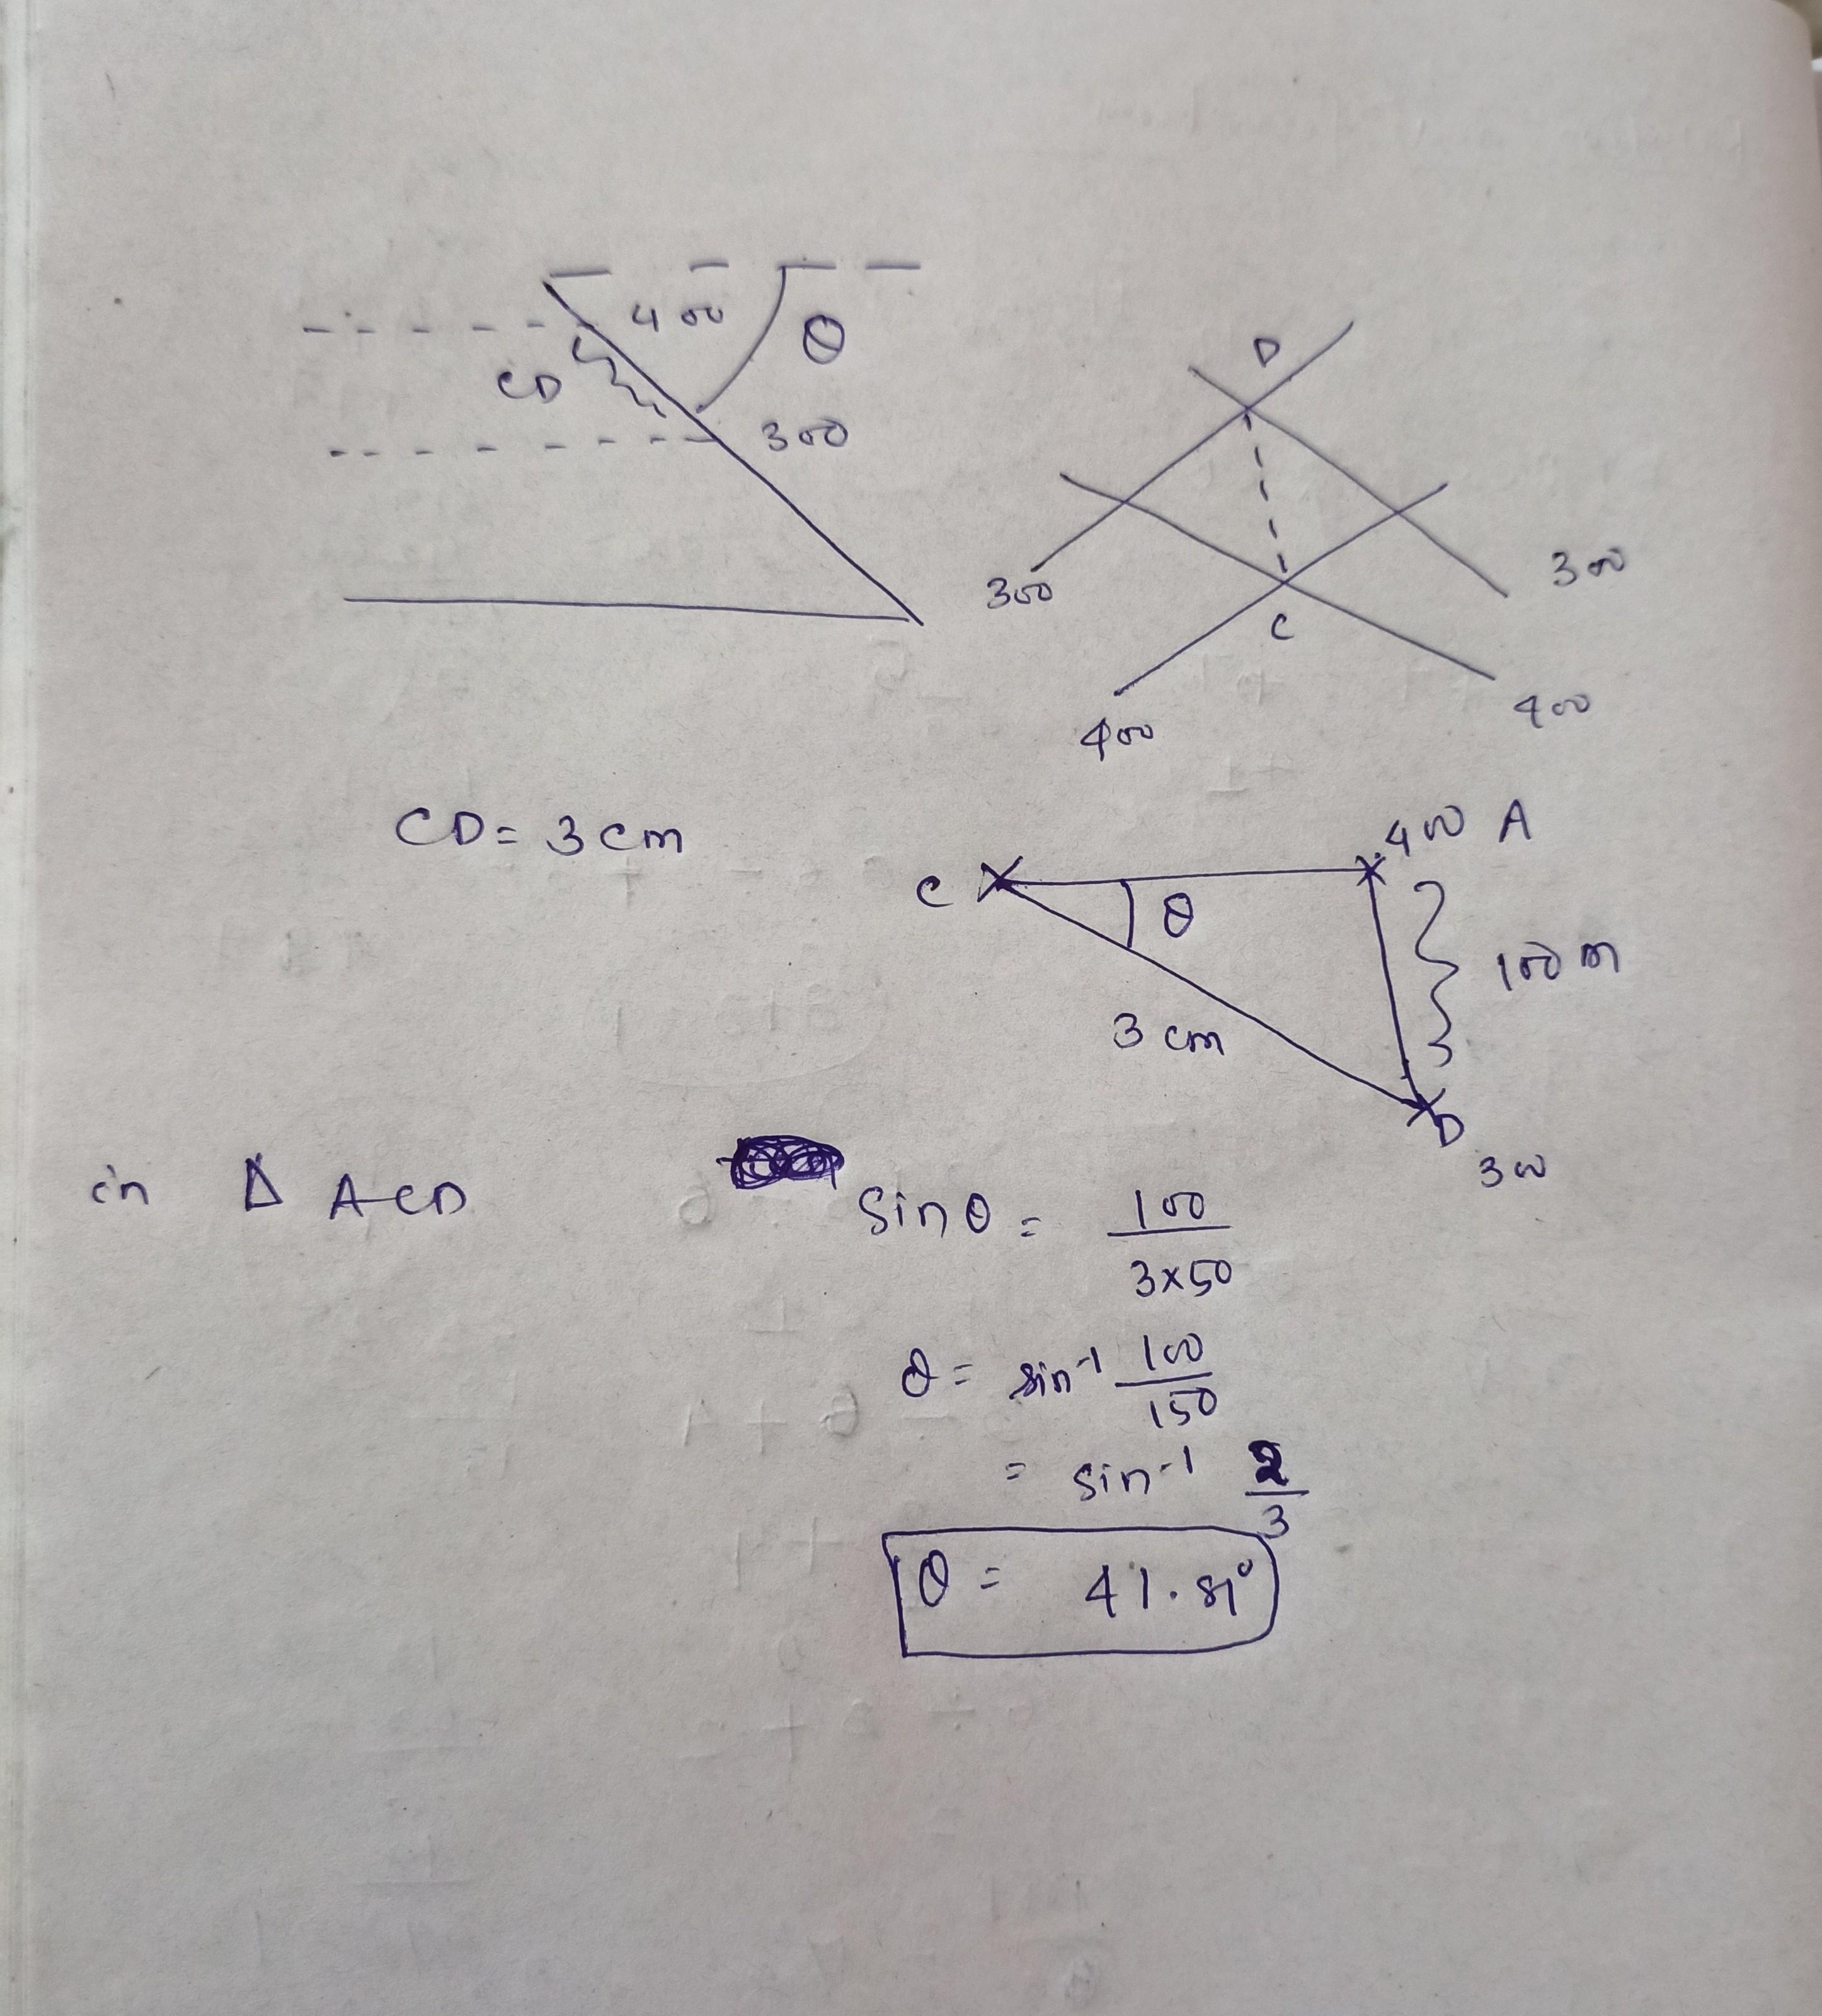 400
θ
CD
300
D
300
300
C
400
400
CD = 3 cm
400 A
C
θ
100 m
3 cm
D
300
in Δ ACD
Sin θ = 100
3×50
θ = sin-1 100
150
= sin-1 2
3
θ = 41.81°